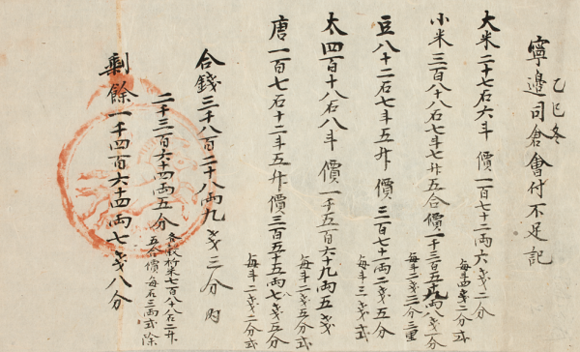 乙巳冬
寧邊司倉會付不足記
大米二十七石六斗 價一百七十二兩六戔二分 每斗四戔二分式
小米三百八十八石七斗七升五合 價一千三百五十九兩八戔一分 每斗二戔三分三里
豆八十二石七斗五升 價三百七十一兩二戔五分 每斗三戔式
太四百十八石八斗 價一千五百六十九兩五戔 每斗二戔五分式
唐一百七石十二斗五升 價三百五十五兩七戔五分 每斗二戔二分式
合錢三千八百二十八兩九戔三分內
二千三百六十四兩五分 各穀折米七百八十八石二升
五合價每石三兩式除
剩餘一千四百六十四兩七戔八分